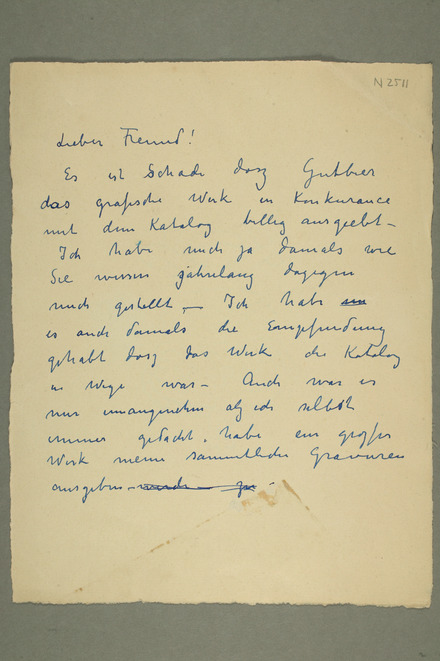 N 2511
Lieber Freund!
Es ist Schade dasz Gutbier
das grafische Werk in Konkurance
mit dem Katalog billig ausgiebt –
Ich habe mich ja damals wie
Sie wissen jahrelang dagegen
mich gestellt, – Ich habe
es auch damals die Empfindung
gehabt dasz das Werk der Katalog
in Wege war – Auch war es
mir unangenehm als ich selbst
immer gedacht habe ein grosses
Werk meine sämmtliche Gravuren
ausgeben –